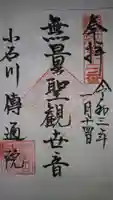 奉拝
令和三年
一月十四日
無量聖観世音
小石川 傳通院